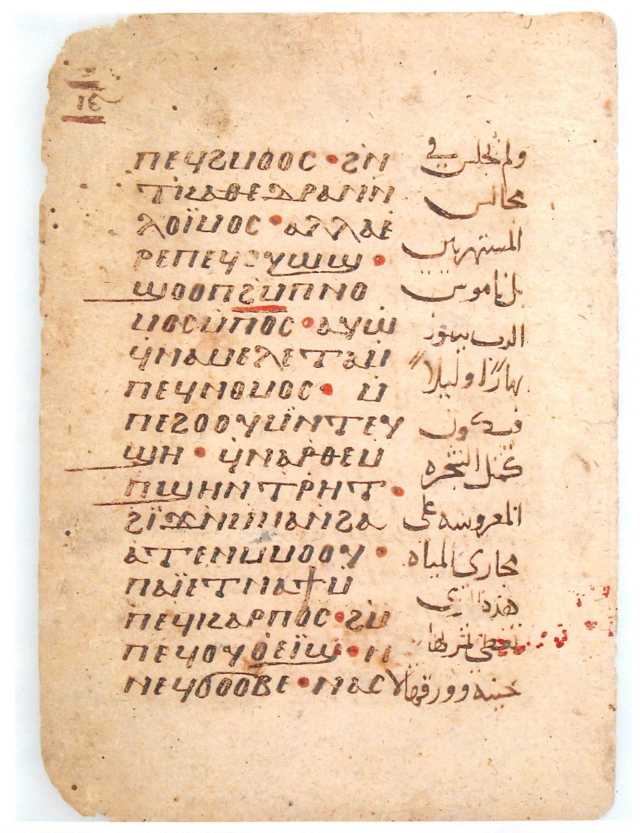 ⲓⲉ
ⲡⲉϥϩⲙⲟⲟⲥ · ϩⲛ
ⲧⲕⲁⲑⲉⲇⲣⲁⲛⲛ
ⲗⲟⲓ̈ⲙⲟⲥ · ⲁⲗⲗⲁⲉ
ⲣⲉⲡⲉϥⲟⲩⲱϣ ·
ϣⲟⲟⲡϩⲙⲡⲛⲟ
ⲙⲟⲥⲙⲡⲟⲥ · ⲁⲩⲱ
ϥⲛⲁⲙⲉⲗⲉⲧⲁⲙ
ⲡⲉϥⲛⲟⲙⲟⲥ · ⲙ
ⲡⲉϩⲟⲟⲩⲙⲛ̈ⲧⲉⲩ
ϣⲏ · ϥⲛⲁⲣⲑⲉⲙ
ⲡϣⲏⲛⲧⲣⲏⲧ ·
ϩⲓ̈ϫⲛⲙⲙⲁⲛϩⲁ
ⲁⲧⲉⲛⲙⲙⲟⲟⲩ ·
ⲡⲁⲓ̈ⲉⲧⲛⲁϯⲙ
ⲡⲉϥⲕⲁⲣⲡⲟⲥ · ϩⲙ
ⲡⲉϥⲟⲩⲟⲉⲓ̈ϣ · ⲛ
ⲛⲉϥϭⲟⲟⲃⲉ · ⲛⲁⲥ
ولم يجلس في
مجالس
المستهزيين
بل ناموس
الرب
نهارًا وليلاً
فيكون
كمثل الشجره
المغروسه على
مجاري المياه
هذه الذي
تعطي ثمرتها
حينه وورقها لا